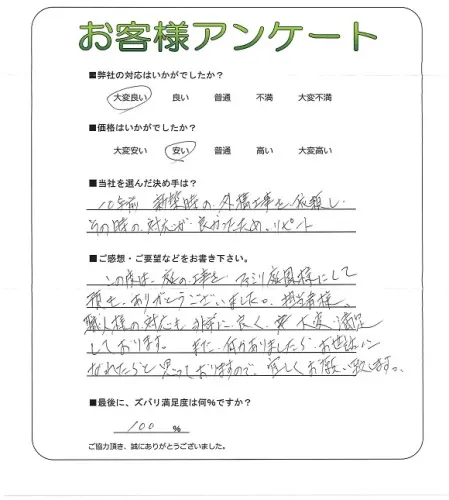 お客様アンケート
■弊社の対応はいかがでしたか？
大変良い 良い 普通 不満 大変不満
■価格はいかがでしたか？
大変安い 安い 普通 高い 大変高い
■当社を選んだ決め手は？
10年前 新築時の、外構工事を依頼し
その時の対応が良かったため、リピート
■ご感想・ご要望などをお書き下さい。
この度は、庭の工事を ファミリ庭園様にして
頂き、ありがとうございました。担当者様、
職人様の対応も非常に良く、大変満足
しております。 また、何かありましたら、お世話に
なれたらと思っておりますので、宜しくお願い致します。
■最後に、ズバリ満足度は何％ですか？
100 ％
ご協力頂き、誠にありがとうございました。